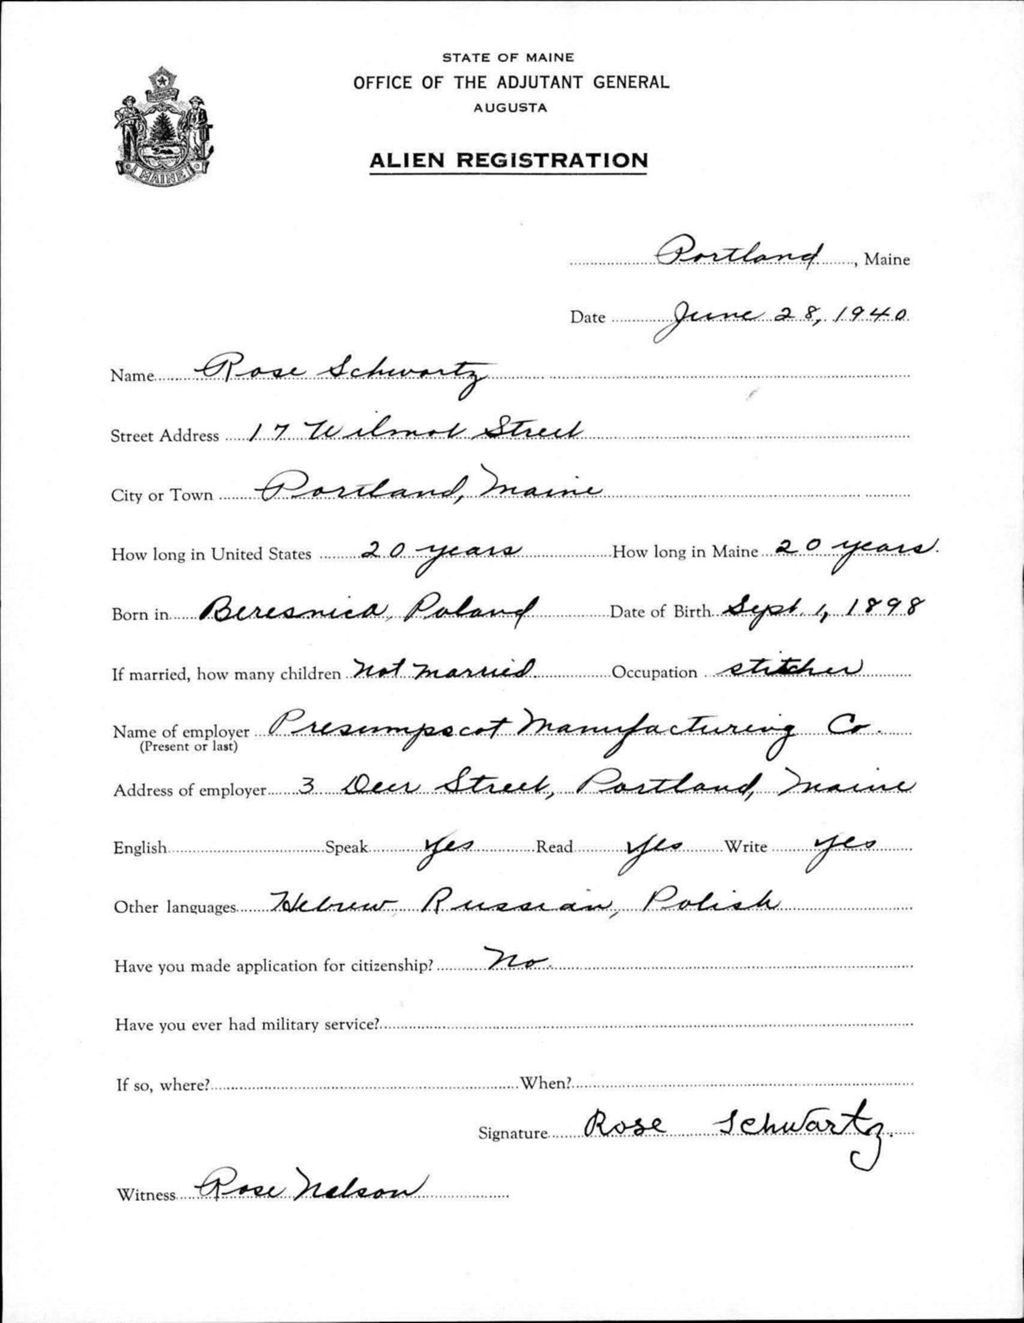 STATE OF MAINE
OFFICE OF THE ADJUTANT GENERAL
AUGUSTA
ALIEN REGISTRATION
MAINE
Portland, Maine
Date June 28, 1940
Name Rose Schwartz
Street Address 17 Wilmot Street
City or Town Portland, Maine
How long in United States 20 years How long in Maine 20 years.
Born in Beresnica, Poland Date of Birth Sept. 1, 1898
If married, how many children Not married. Occupation stitcher
Name of employer Presumpscot Manufacturing Co.
(Present or last)
Address of employer 3 Deer Street, Portland, Maine
English Speak yes Read yes Write yes
Other languages Hebrew, Russian, Polish
Have you made application for citizenship? No.
Have you ever had military service?
If so, where? When?
Signature Rose Schwartz.
Witness Rose Nelson